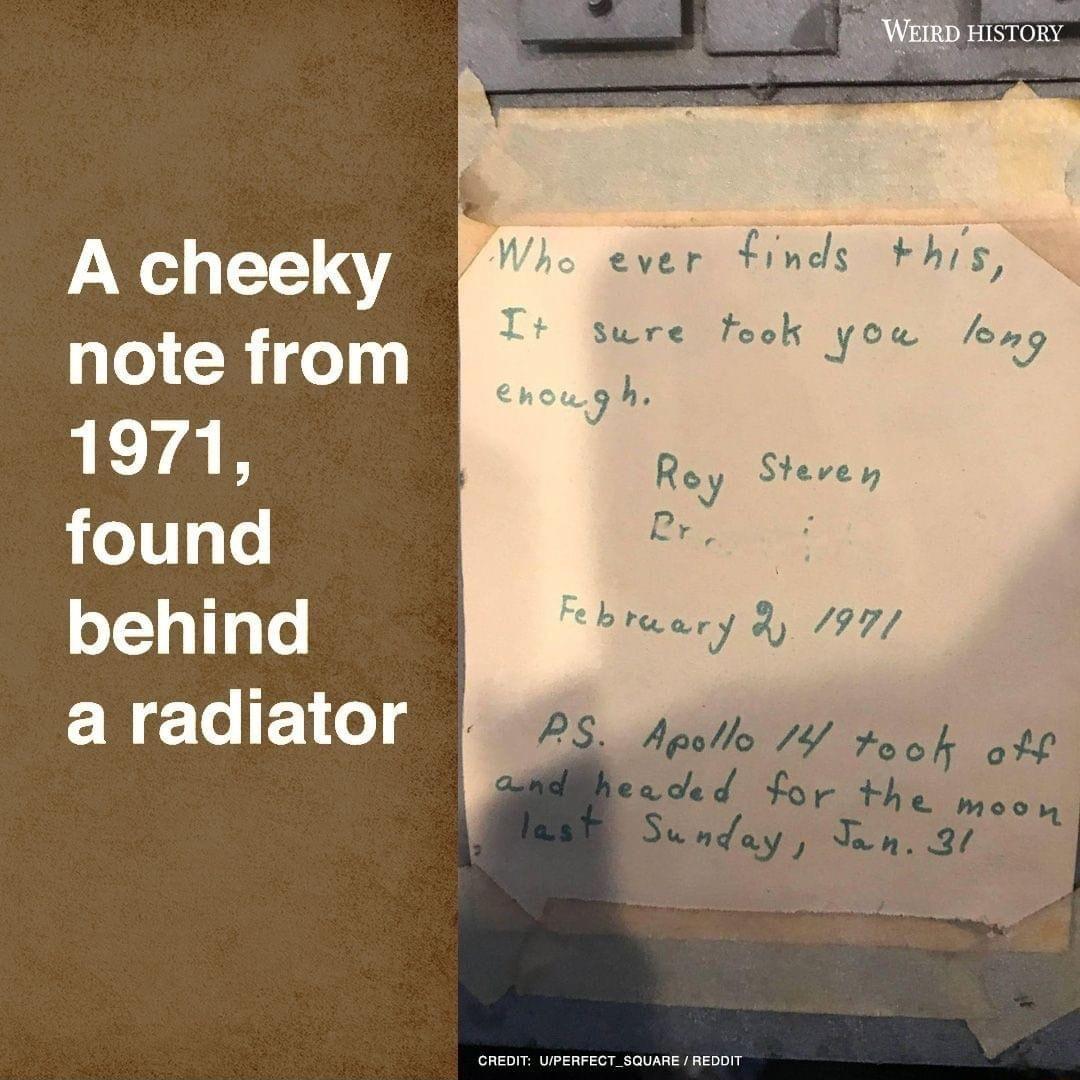 WEIRD HISTORY
A cheeky
note from
1971,
found
behind
a radiator
Who ever finds this,
It sure took you long
enough.
Roy Steven
February 2, 1971
P.S. Apollo 14 took off
and headed for the moon
last Sunday, Jan. 31
CREDIT: U/PERFECT_SQUARE / REDDIT